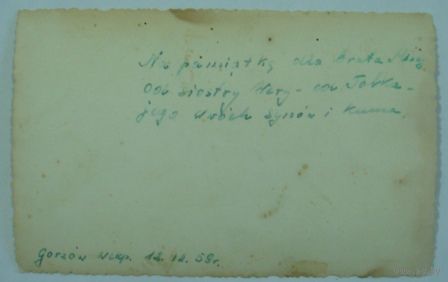 Na pamiątkę dla brata
od siostry Mery - od
jego dwóch synów i kuma.
Gorzów Wlkp. 12.12.59r.